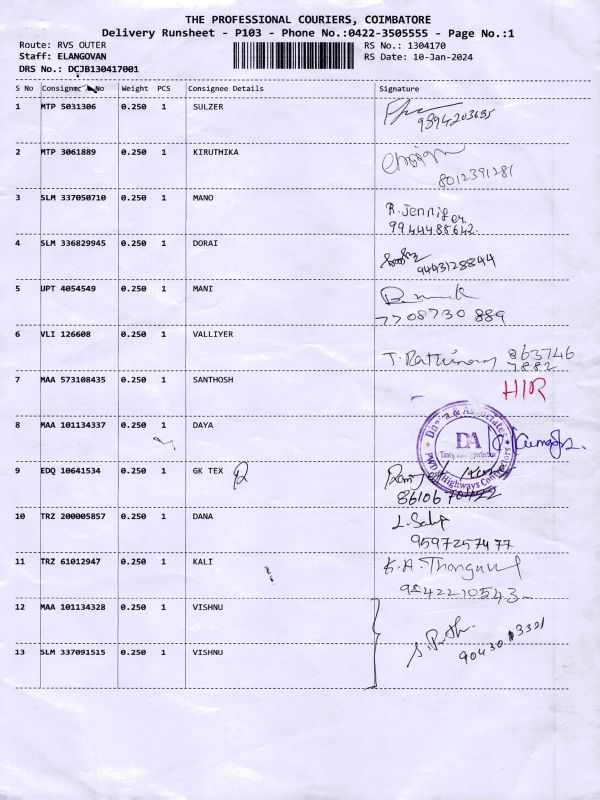 THE PROFESSIONAL COURIERS, COIMBATORE
Delivery Runsheet - P103 - Phone No.:0422-3505555 - Page No.:1
Route: RVS OUTER RS No.: 1304170
Staff: ELANGOVAN RS Date: 10-Jan-2024
DRS No.: DCJB130417001
S No Consignment No Weight PCS Consignee Details Signature
1 MTP 5031306 0.250 1 SULZER
9894203695
2 MTP 3061889 0.250 1 KIRUTHIKA
8012391281
3 SLM 337050710 0.250 1 MANO
R.Jennifer
9944488642.
4 SLM 336829945 0.250 1 DORAI
9443128844
5 UPT 4054549 0.250 1 MANI
7708730 889
6 VLI 126608 0.250 1 VALLIYER
T. Rathinam 863746
7882
7 MAA 573108435 0.250 1 SANTHOSH
H/R
8 MAA 101134337 0.250 1 DAYA
& Associates
DA
PWD Highways Contractors
9 EDQ 10641534 0.250 1 GK TEX
10 TRZ 200005857 0.250 1 DANA
9597257477
11 TRZ 61012947 0.250 1 KALI
K.A. Thangavel
9842210543
12 MAA 101134328 0.250 1 VISHNU
13 SLM 337091515 0.250 1 VISHNU